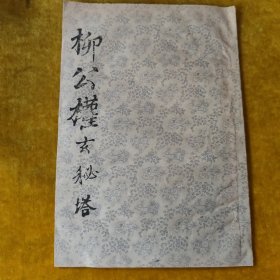 柳公權玄秘塔